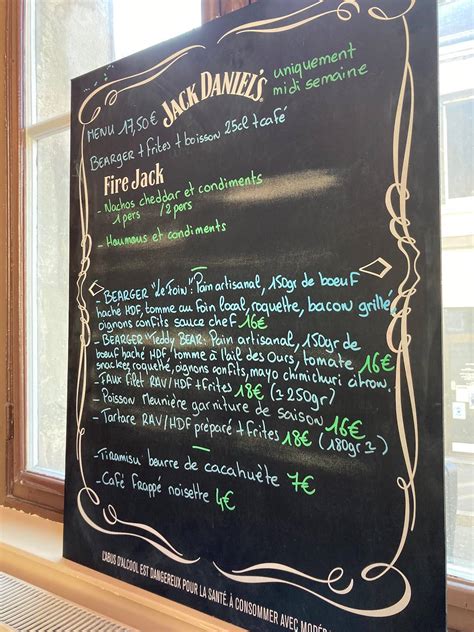 JACK DANIEL'S
uniquement
midi semaine
MENU 17,50€
BEARGER + frites + boisson 25cl + café
Fire Jack
- Nachos cheddar et condiments
1 pers / 2 pers
- Houmous et condiments
- BEARGER "Le Foin": Pain artisanal, 150gr de boeuf
haché HDF, tomme au foin local, roquette, bacon grillé,
oignons confits sauce chef 16€
- BEARGER "Teddy BEAR: Pain artisanal, 150gr de
boeuf haché HDF, tomme à l'ail des Ours, tomate 16€
snackée, roquette, oignons confits, mayo chimichuri citron.
- Faux filet RAV/HDF + frites 18€ (± 250gr)
- Poisson meunière garniture de saison 16€
- Tartare RAV/HDF préparé + frites 18€ (180gr ±)
- Tiramisu beurre de cacahuète 7€
- Café frappé noisette 4€
L'ABUS D'ALCOOL EST DANGEREUX POUR LA SANTÉ. À CONSOMMER AVEC